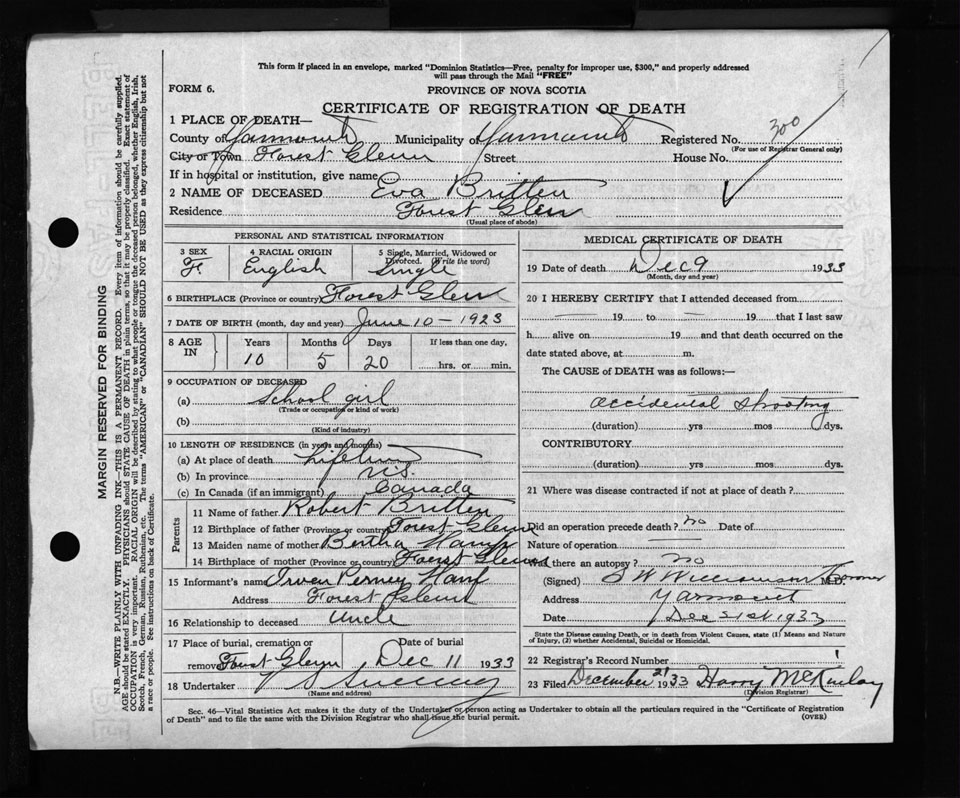 This form if placed in an envelope, marked "Dominion Statistics—Free, penalty for improper use, $300," and properly addressed
will pass through the Mail "FREE"
FORM 6.
PROVINCE OF NOVA SCOTIA
CERTIFICATE OF REGISTRATION OF DEATH
1 PLACE OF DEATH—
County of Yarmouth Municipality of Yarmouth Registered No. 300
(For use of Registrar General only)
City or Town Forest Glenn Street House No.
If in hospital or institution, give name
2 NAME OF DECEASED Eva Britten
Residence Forest Glen
(Usual place of abode)
PERSONAL AND STATISTICAL INFORMATION
3 SEX F
4 RACIAL ORIGIN English
5 Single, Married, Widowed or Divorced. (Write the word) Single
6 BIRTHPLACE (Province or country) Forest Glen
7 DATE OF BIRTH (month, day and year) June 10 - 1923
8 AGE IN Years Months Days If less than one day,
10 5 20 hrs. or min.
9 OCCUPATION OF DECEASED
(a) School girl
(Trade or occupation or kind of work)
(b)
(Kind of industry)
10 LENGTH OF RESIDENCE (in years and months)
(a) At place of death Lifetime
(b) In province N.S.
(c) In Canada (if an immigrant) Canada
Parents
11 Name of father Robert Britten
12 Birthplace of father (Province or country) Forest Glenn
13 Maiden name of mother Bertha
14 Birthplace of mother (Province or country) Forest Glenn
15 Informant's name
Address Forest Glenn
16 Relationship to deceased Uncle
17 Place of burial, cremation or Date of burial
removal Forest Glenn Dec 11 1933
18 Undertaker
(Name and address)
MEDICAL CERTIFICATE OF DEATH
19 Date of death Dec 9 1933
(Month, day and year)
20 I HEREBY CERTIFY that I attended deceased from
— 19 to — 19 that I last saw
h alive on 19 and that death occurred on the
date stated above, at m.
The CAUSE of DEATH was as follows:—
accidental shooting
(duration) yrs mos dys.
CONTRIBUTORY
(duration) yrs mos dys.
21 Where was disease contracted if not at place of death?
Did an operation precede death? no Date of
Nature of operation —
Was there an autopsy? no
(Signed) Williamson Coroner M.D.
Address Yarmouth
Date Dec 21st 1933
State the Disease causing Death, or in death from Violent Causes, state (1) Means and Nature
of Injury, (2) whether Accidental, Suicidal or Homicidal.
22 Registrar's Record Number 1
23 Filed December 21 1933 Harry McKinlay
(Division Registrar)
Sec. 46—Vital Statistics Act makes it the duty of the Undertaker or person acting as Undertaker to obtain all the particulars required in the "Certificate of Registration
of Death" and to file the same with the Division Registrar who shall issue the burial permit.
(OVER)
MARGIN RESERVED FOR BINDING
N.B.—WRITE PLAINLY WITH UNFADING INK—THIS IS A PERMANENT RECORD. Every item of information should be carefully supplied.
AGE should be stated EXACTLY. PHYSICIANS should STATE CAUSE OF DEATH in plain terms, so that it may be properly classified. Exact statement of
OCCUPATION is very important. RACIAL ORIGIN will be described by stating to what people or tongue the deceased person belonged, whether English, Irish,
Scotch, French, German, Russian, Ruthenian, etc. The terms "AMERICAN" or "CANADIAN" SHOULD NOT BE USED as they express citizenship but not
a race or people. See instructions on back of Certificate.